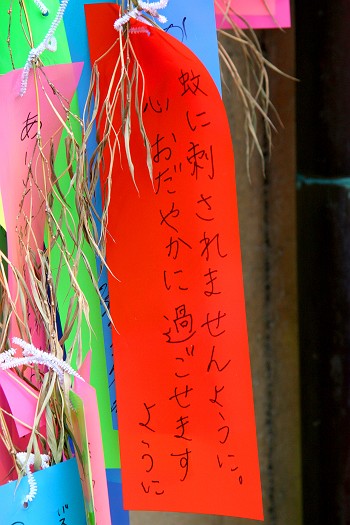 蚊に刺されませんように。
心 おだやかに過ごせます
ように
あり